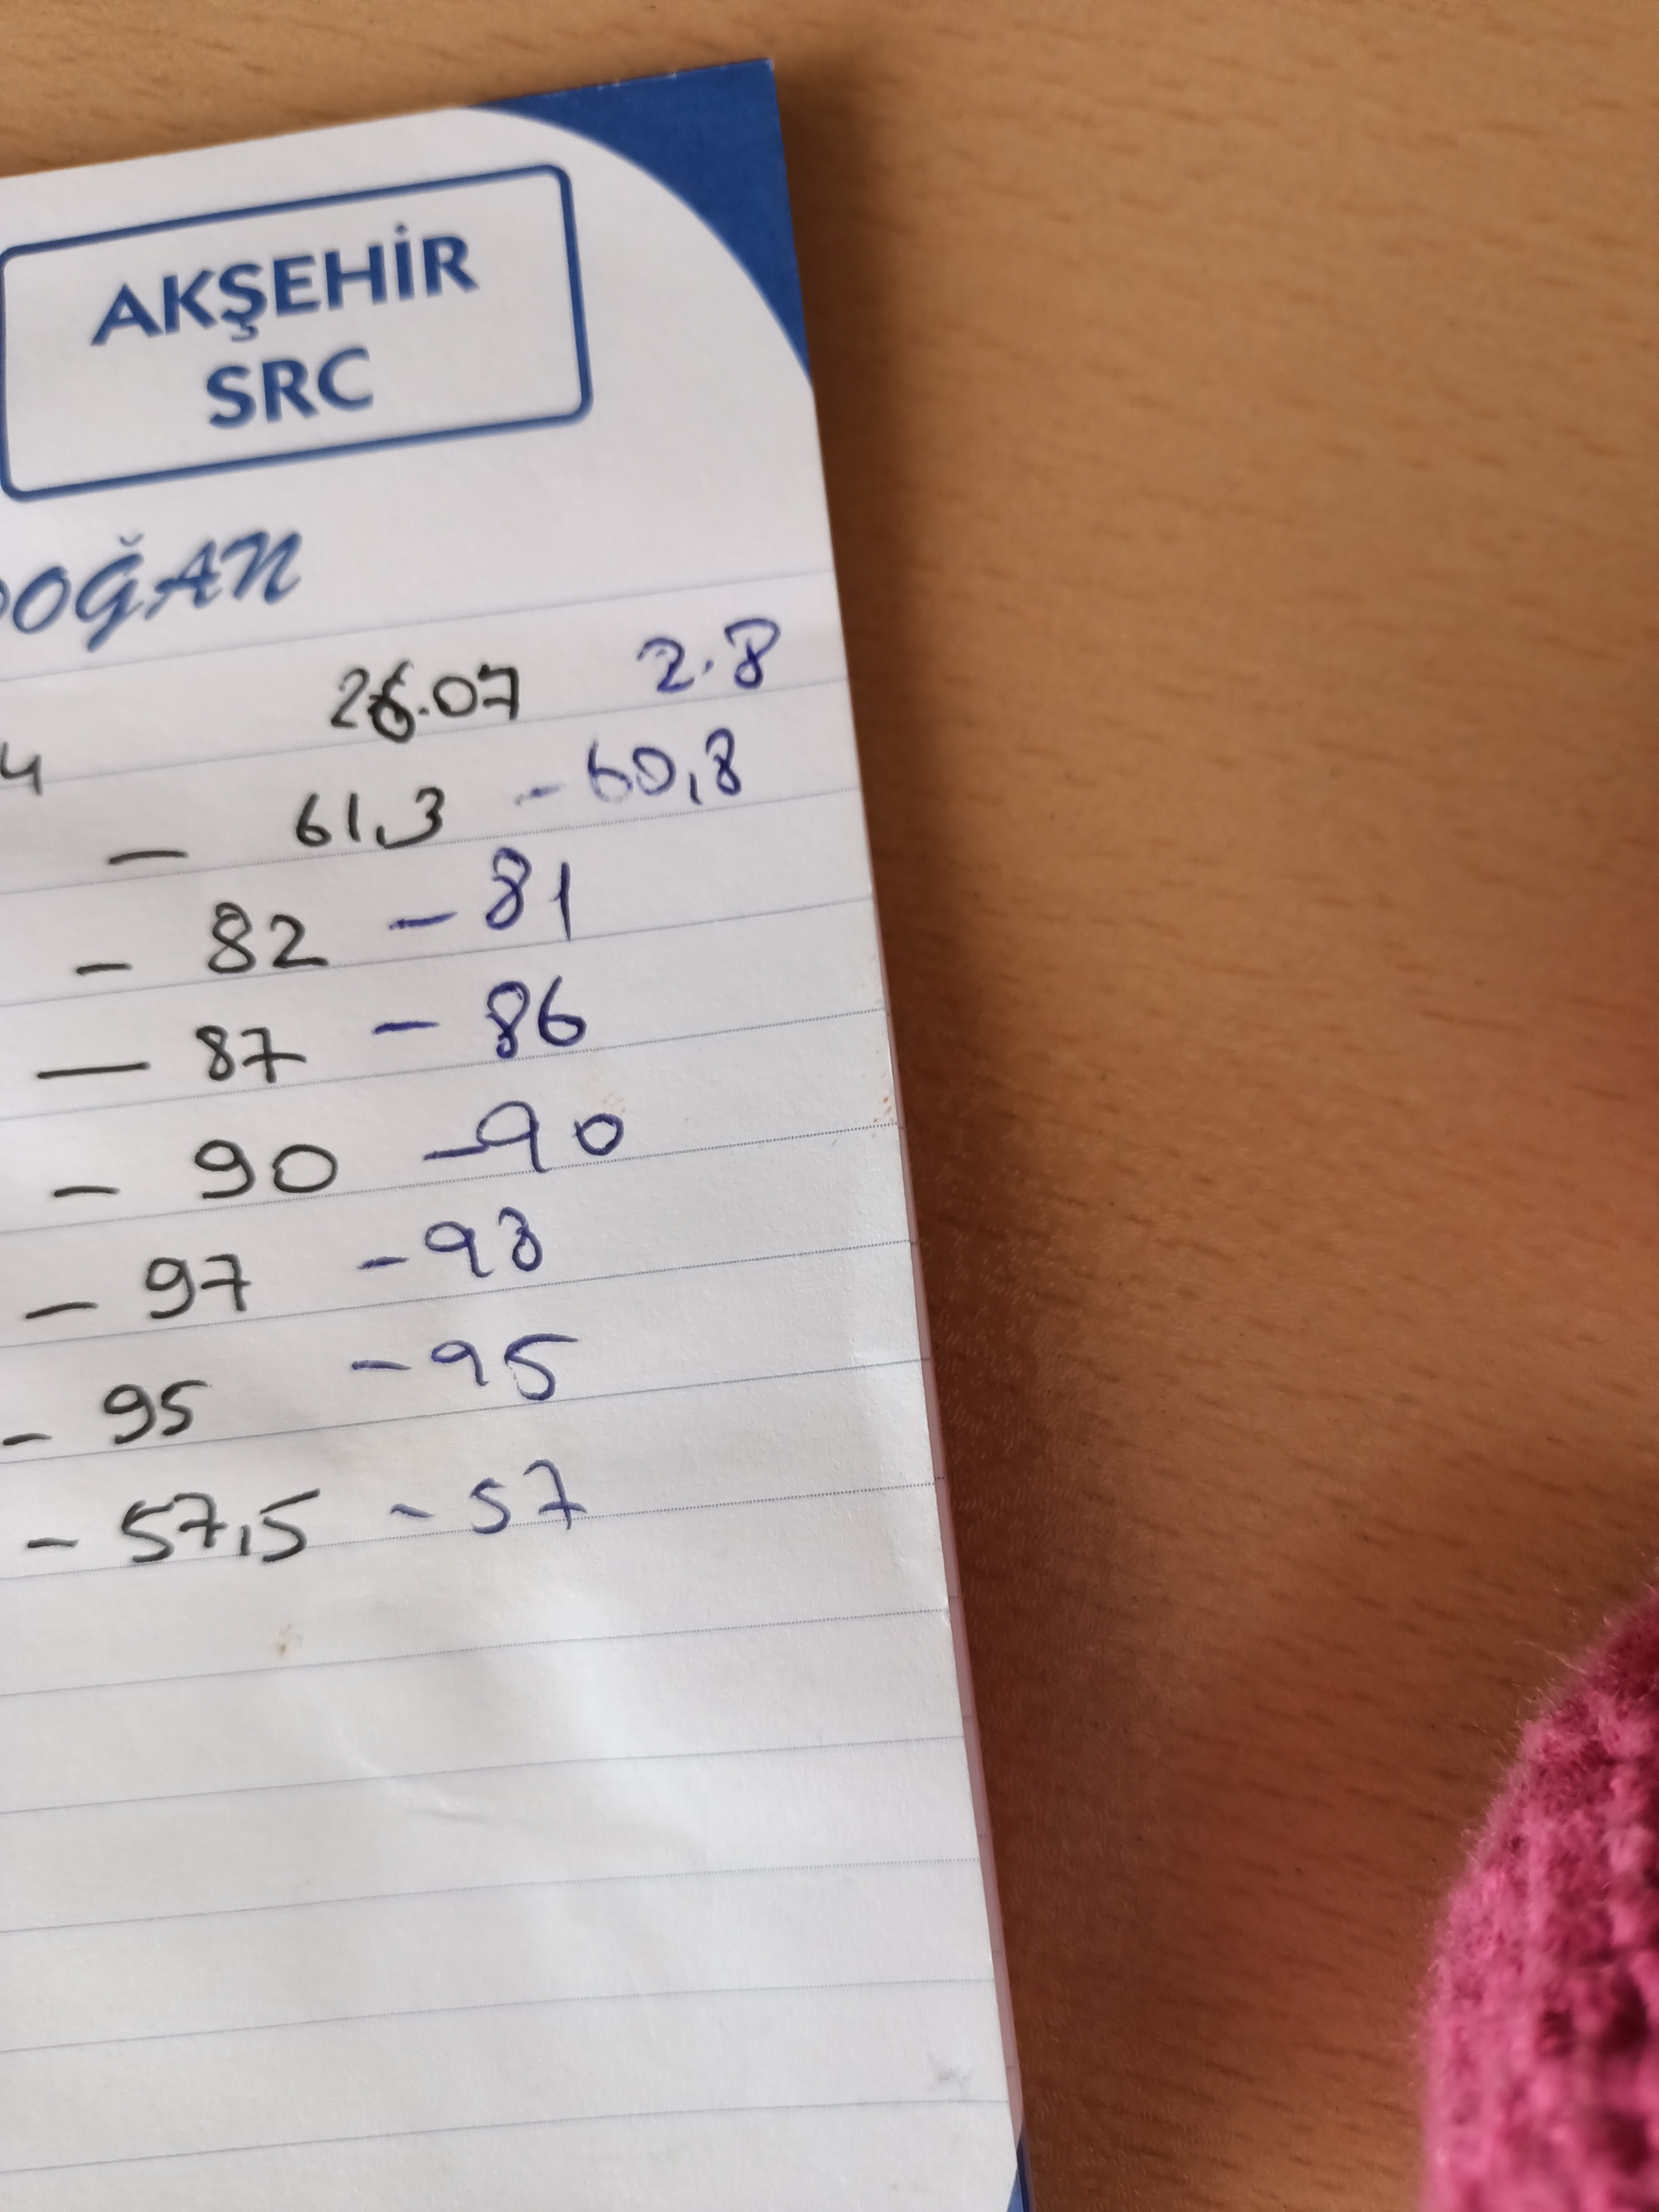 AKŞEHİR
SRC
DOĞAN
26.07 2.8
4
– 61,3 - 60,8
– 82 – 81
– 87 – 86
– 90 – 90
– 97 – 93
– 95 – 95
– 57,5 - 57